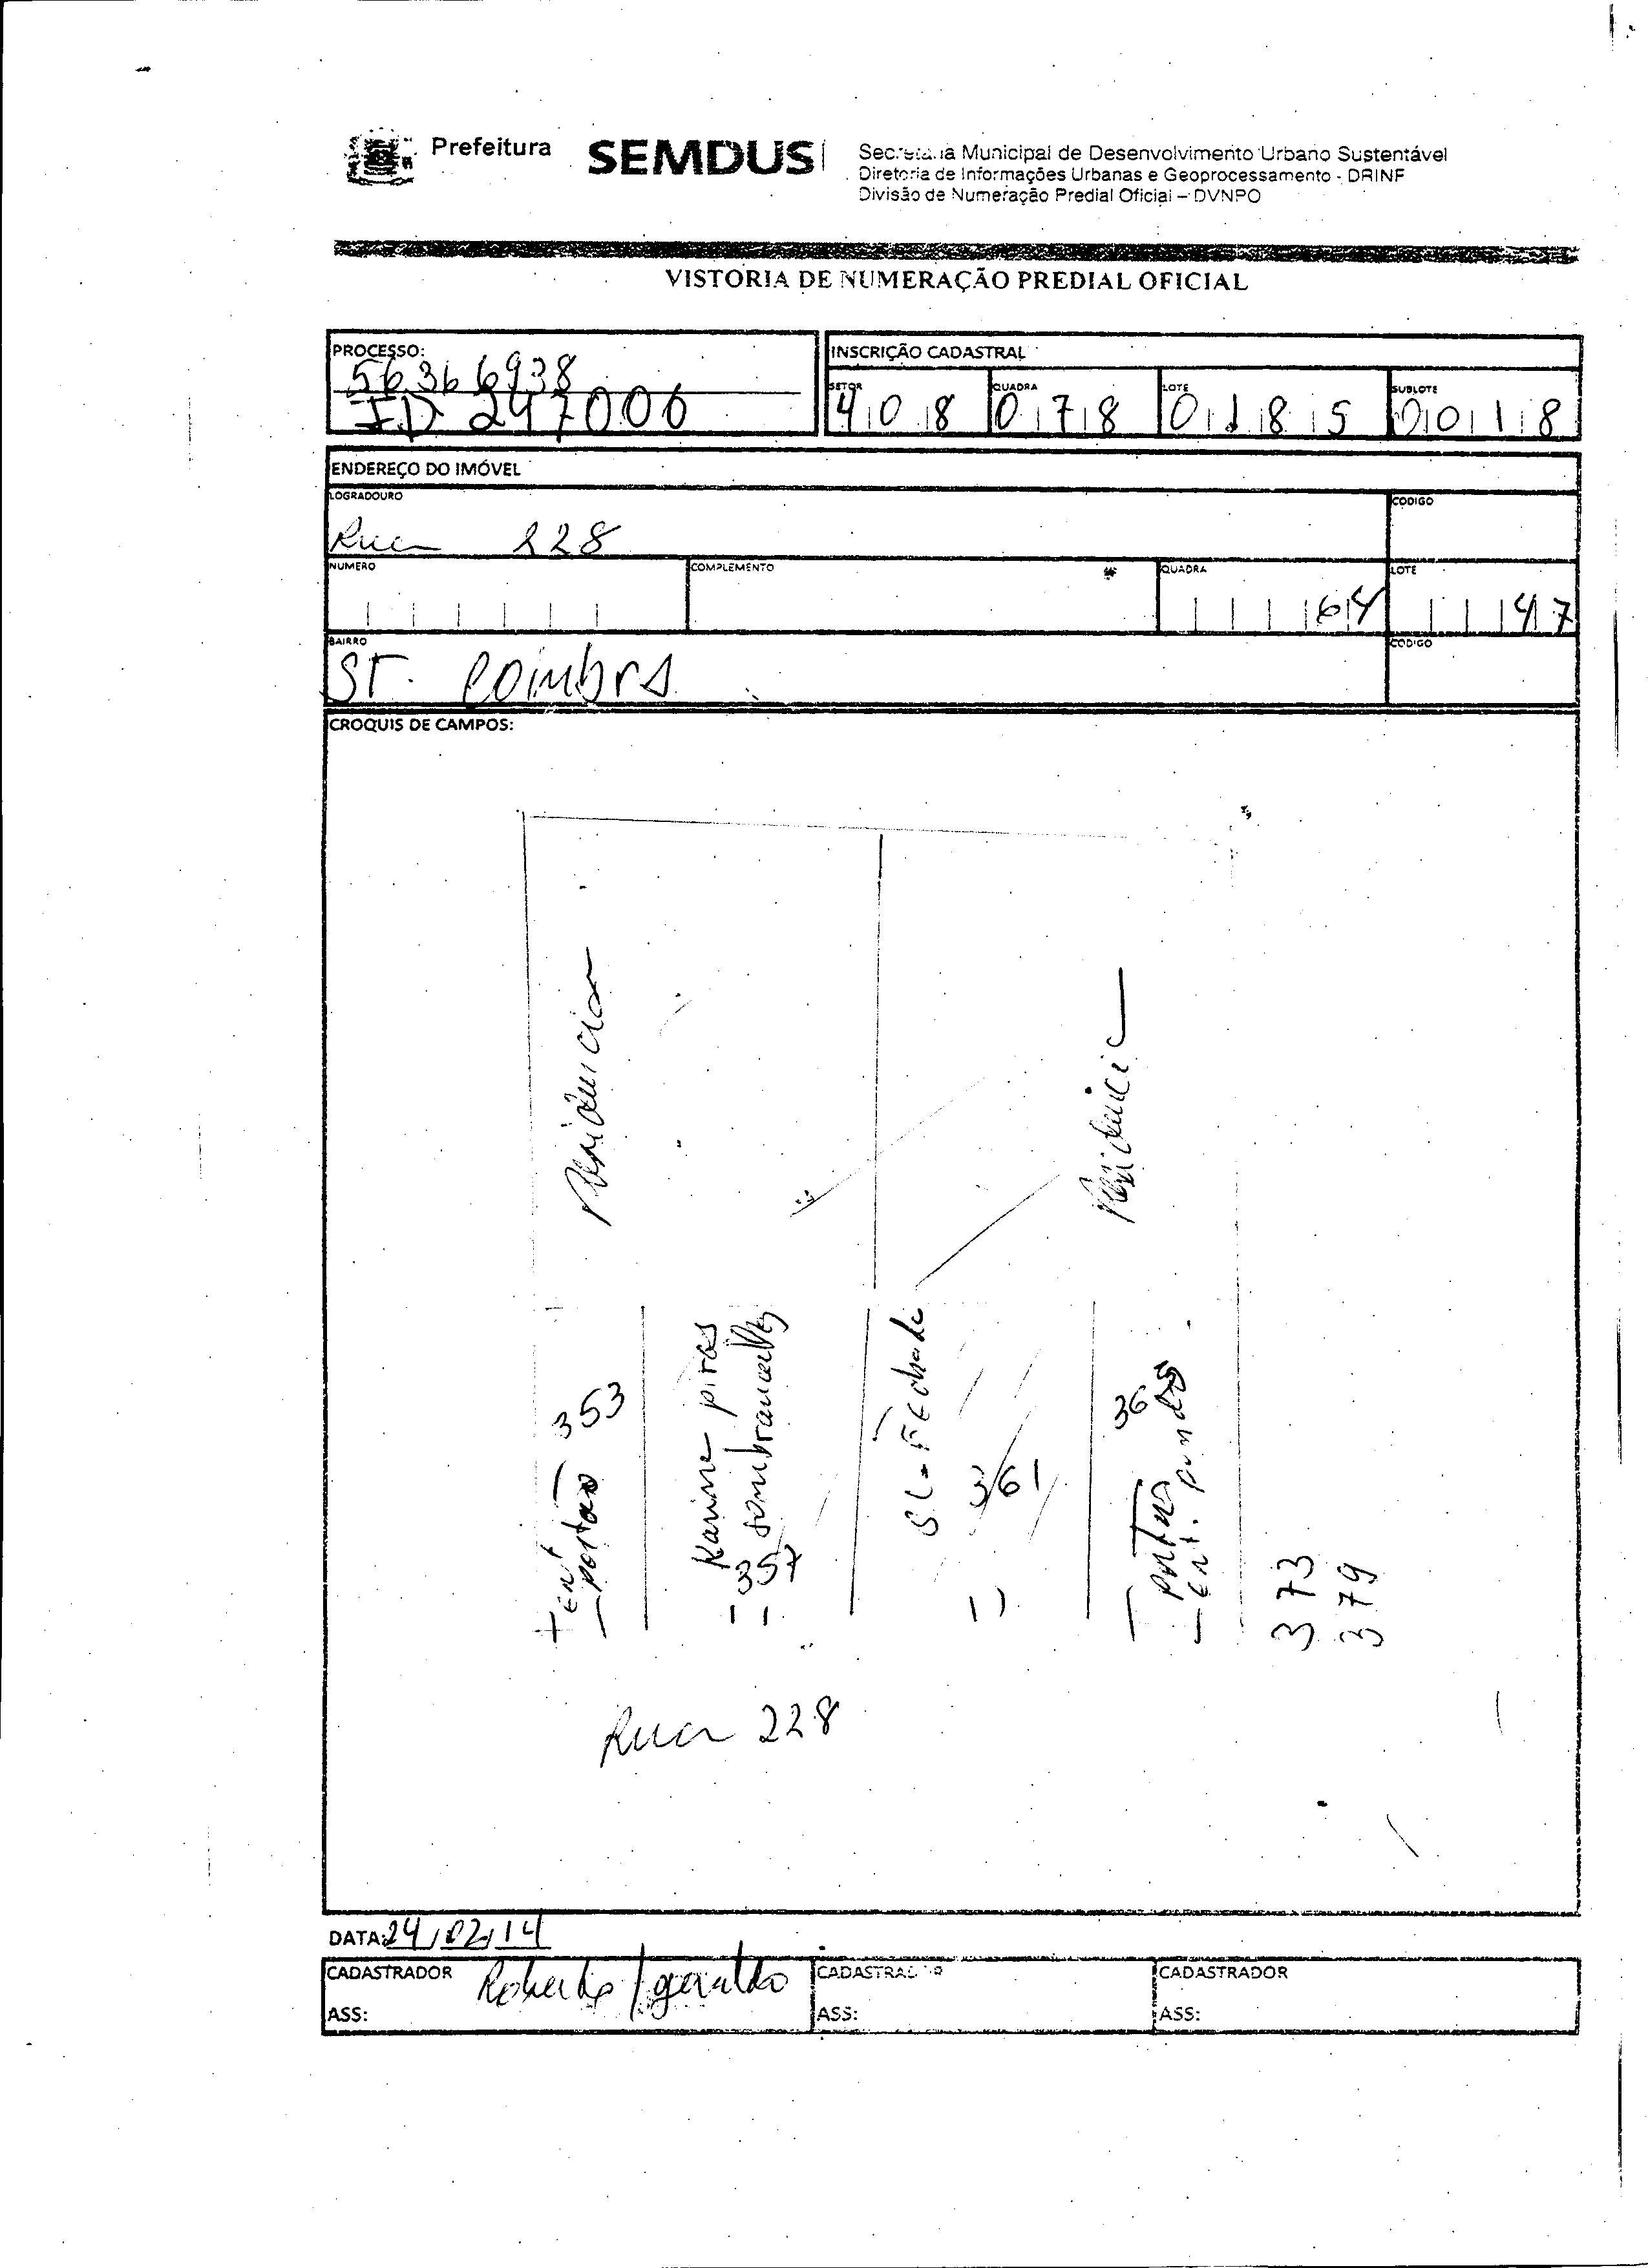 Prefeitura SEMDUS
Secretaria Municipal de Desenvolvimento Urbano Sustentável
Diretoria de Informações Urbanas e Geoprocessamento - DRINF
Divisão de Numeração Predial Oficial – DVNPO
VISTORIA DE NUMERAÇÃO PREDIAL OFICIAL
PROCESSO:
56366938
ID 247000
INSCRIÇÃO CADASTRAL
SETOR QUADRA LOTE SUBLOTE
408 078 0185 0018
ENDEREÇO DO IMÓVEL
LOGRADOURO CODIGO
Rua 228
NUMERO COMPLEMENTO QUADRA LOTE
64 47
BAIRRO CODIGO
ST. Coimbra
CROQUIS DE CAMPOS:
Residencia
Residencia
353
Ent
portão
Karine pires
sombrancelhas
357
SL-Fechada
361
portão
Ent. fundos
373
379
Rua 228
DATA: 24/02/14
CADASTRADOR Roberto/geraldo CADASTRADOR CADASTRADOR
ASS: ASS: ASS: